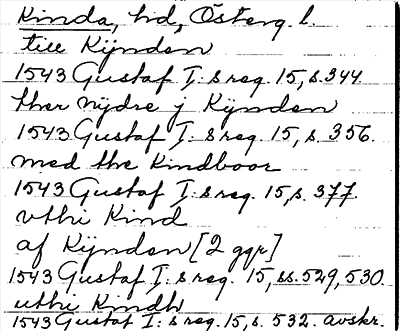 Kinda, hd, Österg. l.
till Kÿnden
1543 Gustaf I: s reg. 15, s. 344.
ther nÿdre j Kÿnden
1543 Gustaf I: s reg. 15, s. 356.
med the Kindboor
1543 Gustaf I: s reg. 15, s. 377.
vthi Kind
af Kÿnden [2 ggr]
1543 Gustaf I: s reg. 15, ss. 529, 530.
uthi Kindh
1543 Gustaf I: s reg. 15, s. 532. avskr.